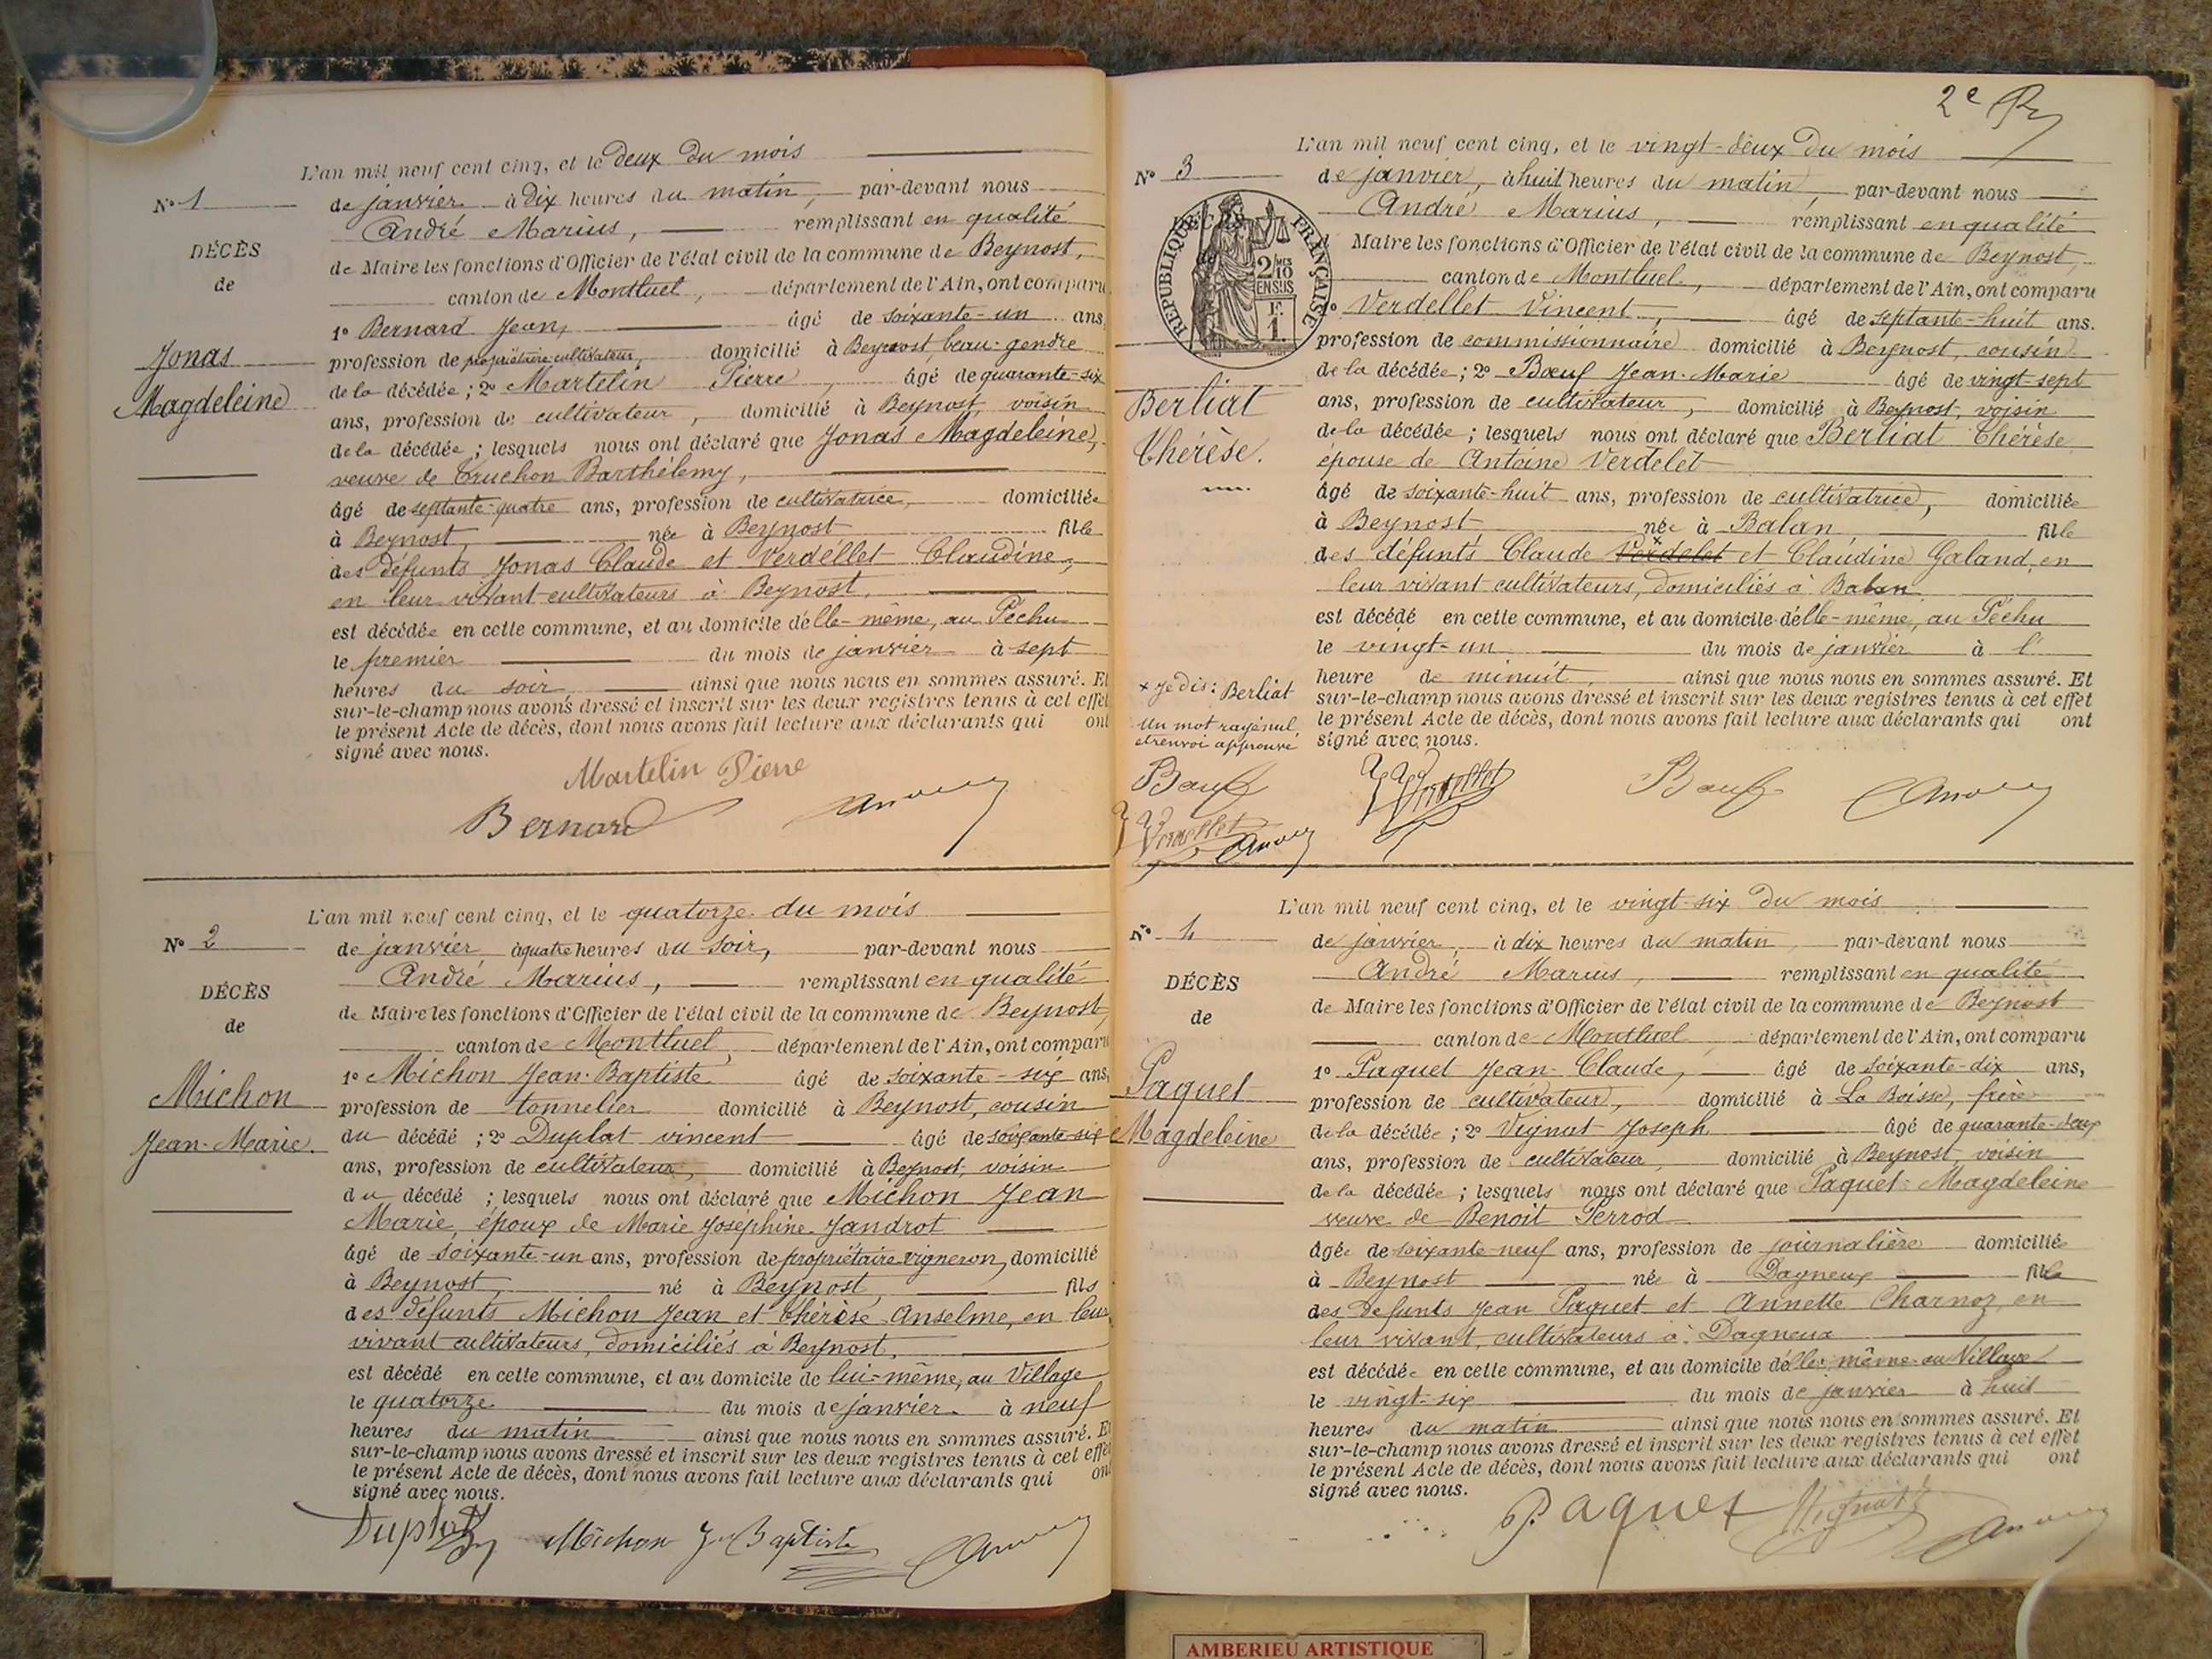 L'an mil neuf cent cinq, et le deux du mois
No 1
de janvier à dix heures du matin, par-devant nous
André Marius, remplissant en qualité
DÉCÈS
de
de Maire les fonctions d'Officier de l'état civil de la commune de Beynost,
canton de Montluel, département de l'Ain, ont comparu
1o Bernard Jean, âgé de soixante-un ans,
Jonas
Magdeleine
profession de propriétaire cultivateur, domicilié à Beynost, beau-gendre
de la décédée ; 2o Martelin Pierre, âgé de quarante-six
ans, profession de cultivateur, domicilié à Beynost, voisin
de la décédée ; lesquels nous ont déclaré que Jonas Magdeleine,
veuve de Truchon Barthélemy,
âgé de septante-quatre ans, profession de cultivatrice, domiciliée
à Beynost, née à Beynost fille
des défunts Jonas Claude et Verdellet Claudine,
en leur vivant cultivateurs à Beynost,
est décédée en cette commune, et au domicile d'elle-même, au Péchu
le premier du mois de janvier à sept
heures du soir, ainsi que nous nous en sommes assuré. Et
sur-le-champ nous avons dressé et inscrit sur les deux registres tenus à cet effet
le présent Acte de décès, dont nous avons fait lecture aux déclarants qui ont
signé avec nous.
Martelin Pierre
Bernard
L'an mil neuf cent cinq, et le quatorze du mois
No 2
de janvier à quatre heures du soir, par-devant nous
André Marius, remplissant en qualité
DÉCÈS
de
de Maire les fonctions d'Officier de l'état civil de la commune de Beynost,
canton de Montluel, département de l'Ain, ont comparu
1o Michon Jean-Baptiste âgé de soixante-six ans,
Michon
Jean-Marie.
profession de tonnelier domicilié à Beynost, cousin
du décédé ; 2o Duplat vincent âgé de soixante-six
ans, profession de cultivateur, domicilié à Beynost, voisin
du décédé ; lesquels nous ont déclaré que Michon Jean
Marie, époux de Marie Joséphine Jandrot
âgé de soixante-un ans, profession de propriétaire vigneron, domicilié
à Beynost, né à Beynost, fils
des défunts Michon Jean et thérèse Anselme, en leur
vivant cultivateurs, domiciliés à Beynost,
est décédé en cette commune, et au domicile de lui-même, au Village
le quatorze du mois de janvier à neuf
heures du matin ainsi que nous nous en sommes assuré. Et
sur-le-champ nous avons dressé et inscrit sur les deux registres tenus à cet effet
le présent Acte de décès, dont nous avons fait lecture aux déclarants qui ont
signé avec nous.
Duplat Michon J Baptiste
2e
L'an mil neuf cent cinq, et le vingt-deux du mois
No 3
de janvier, à huit heures du matin, par-devant nous
André Marius, remplissant en qualité
RÉPUBLIQUE FRANÇAISE
2/10 MES
EN SUS
F. 1.
Maire les fonctions d'Officier de l'état civil de la commune de Beynost,
canton de Montluel, département de l'Ain, ont comparu
1o Verdellet Vincent, âgé de septante-huit ans.
profession de commissionnaire domicilié à Beynost, cousin
de la décédée ; 2o Bœuf Jean-Marie âgé de vingt-sept
Berliat
Thérèse.
ans, profession de cultivateur, domicilié à Beynost, voisin
de la décédée ; lesquels nous ont déclaré que Berliat Thérèse
épouse de Antoine Verdelet
âgé de soixante-huit ans, profession de cultivatrice, domiciliée
à Beynost née à Balan fille
des défunts Claude Verdelet et Claudine Galand, en
leur vivant cultivateurs, domiciliés à Balan
est décédé en cette commune, et au domicile d'elle-même, au Péchu
le vingt-un du mois de janvier à l'
heure de minuit, ainsi que nous nous en sommes assuré. Et
sur-le-champ nous avons dressé et inscrit sur les deux registres tenus à cet effet
le présent Acte de décès, dont nous avons fait lecture aux déclarants qui ont
signé avec nous.
x Je dis : Berliat
Un mot rayé nul
et renvoi approuvé
Bœuf Verdellet Bœuf
Verdellet
L'an mil neuf cent cinq, et le vingt-six du mois
No 4
de janvier, à dix heures du matin, par-devant nous
André Marius, remplissant en qualité
DÉCÈS
de
de Maire les fonctions d'Officier de l'état civil de la commune de Beynost
canton de Montluel, département de l'Ain, ont comparu
1o Paquet Jean-Claude, âgé de soixante-dix ans,
Paquet
Magdeleine
profession de cultivateur, domicilié à La Boisse, frère
de la décédée ; 2o Vignat Joseph âgé de quarante-deux
ans, profession de cultivateur, domicilié à Beynost, voisin
de la décédée ; lesquels nous ont déclaré que Paquet Magdeleine
veuve de Benoit Perrod
âgée de soixante-neuf ans, profession de journalière domiciliée
à Beynost née à Dagneux fille
des défunts Jean Paquet et Annette Charnoz, en
leur vivant, cultivateurs à Dagneux
est décédée en cette commune, et au domicile d'elle-même au Village
le vingt-six du mois de janvier à huit
heures du matin ainsi que nous nous en sommes assuré. Et
sur-le-champ nous avons dressé et inscrit sur les deux registres tenus à cet effet
le présent Acte de décès, dont nous avons fait lecture aux déclarants qui ont
signé avec nous.
Paquet Vignat
AMBERIEU ARTISTIQUE